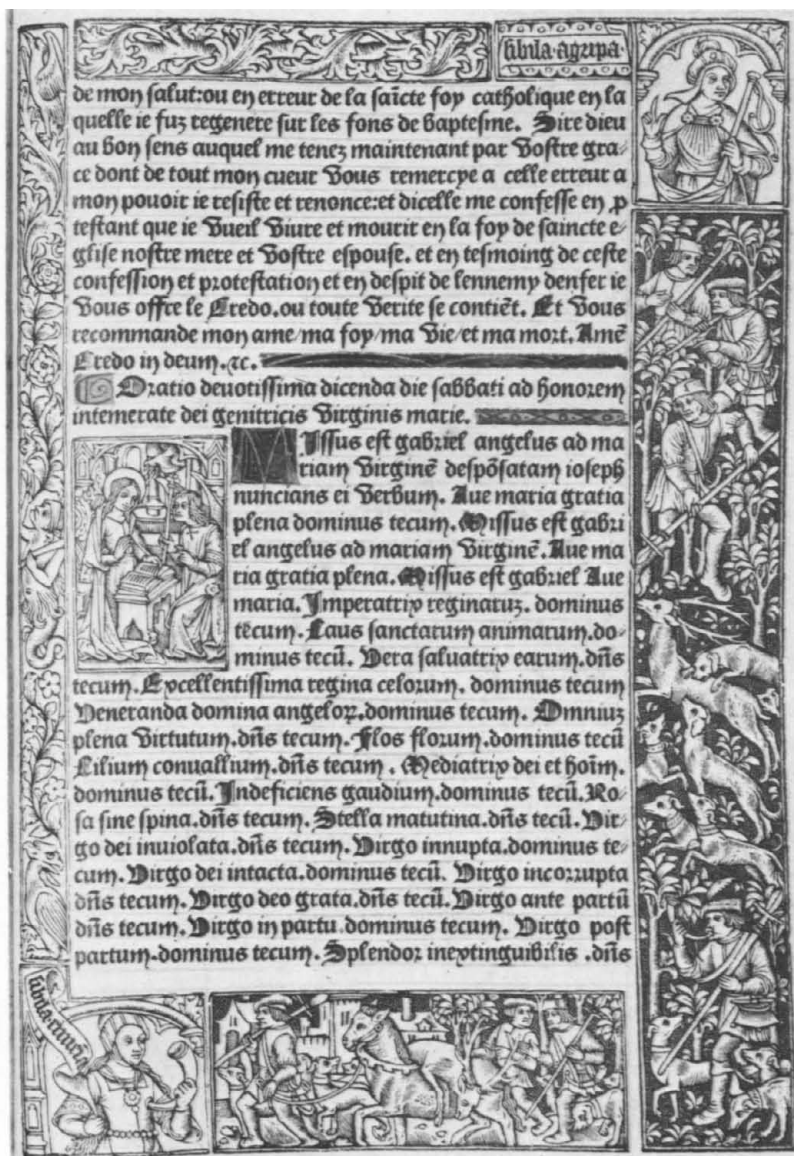 sibila·agripa·
de mon salut:ou en erreur de la saīcte foy catholique en la
quelle ie fuz regenere sur les fons de baptesme. Sire dieu
au bon sens auquel me tenez maintenant par vostre gra-
ce dont de tout mon cueur vous remercye a celle erreur a
mon pouoir ie resiste et renonce:et dicelle me confesse en ꝓ
testant que ie vueil viure et mourir en la foy de saincte e-
glise nostre mere et vostre espouse. et en tesmoing de ceste
confession et protestation et en despit de lennemy denfer ie
vous offre le Credo.ou toute verite se contiēt. Et vous
recommande mon ame/ma foy/ma vie/et ma mort. Amē
Credo in deum.⁊c.
Oratio deuotissima dicenda die sabbati ad honorem
intemerate dei genitricis virginis marie.
Missus est gabriel angelus ad ma
riam virginē despōsatam ioseph
nuncians ei verbum. Aue maria gratia
plena dominus tecum. Missus est gabri
el angelus ad mariam virginē. Aue ma
ria gratia plena. Missus est gabriel Aue
maria. Imperatrix reginaruꝫ. dominus
tēcum. Laus sanctarum animarum.do-
minus tecū. Vera saluatrix earum.dn̄s
tecum. Excellentissima regina celorum. dominus tecum
Veneranda domina angeloꝝ.dominus tecum. Omniuꝫ
plena virtutum.dn̄s tecum. Flos florum.dominus tecū
Lilium conuallium.dn̄s tecum. Mediatrix dei et hoīm.
dominus tecū. Indeficiens gaudium.dominus tecū. Ro-
sa sine spina.dn̄s tecum. Stella matutina.dn̄s tecū. Vir-
go dei inuiolata.dn̄s tecum. Virgo innupta.dominus te-
cum. Virgo dei intacta.dominus tecū. Virgo incorrupta
dn̄s tecum. Virgo deo grata.dn̄s tecū. Virgo ante partū
dn̄s tecum. Virgo in partu.dominus tecum. Virgo post
partum.dominus tecum. Splendor inextinguibilis .dn̄s